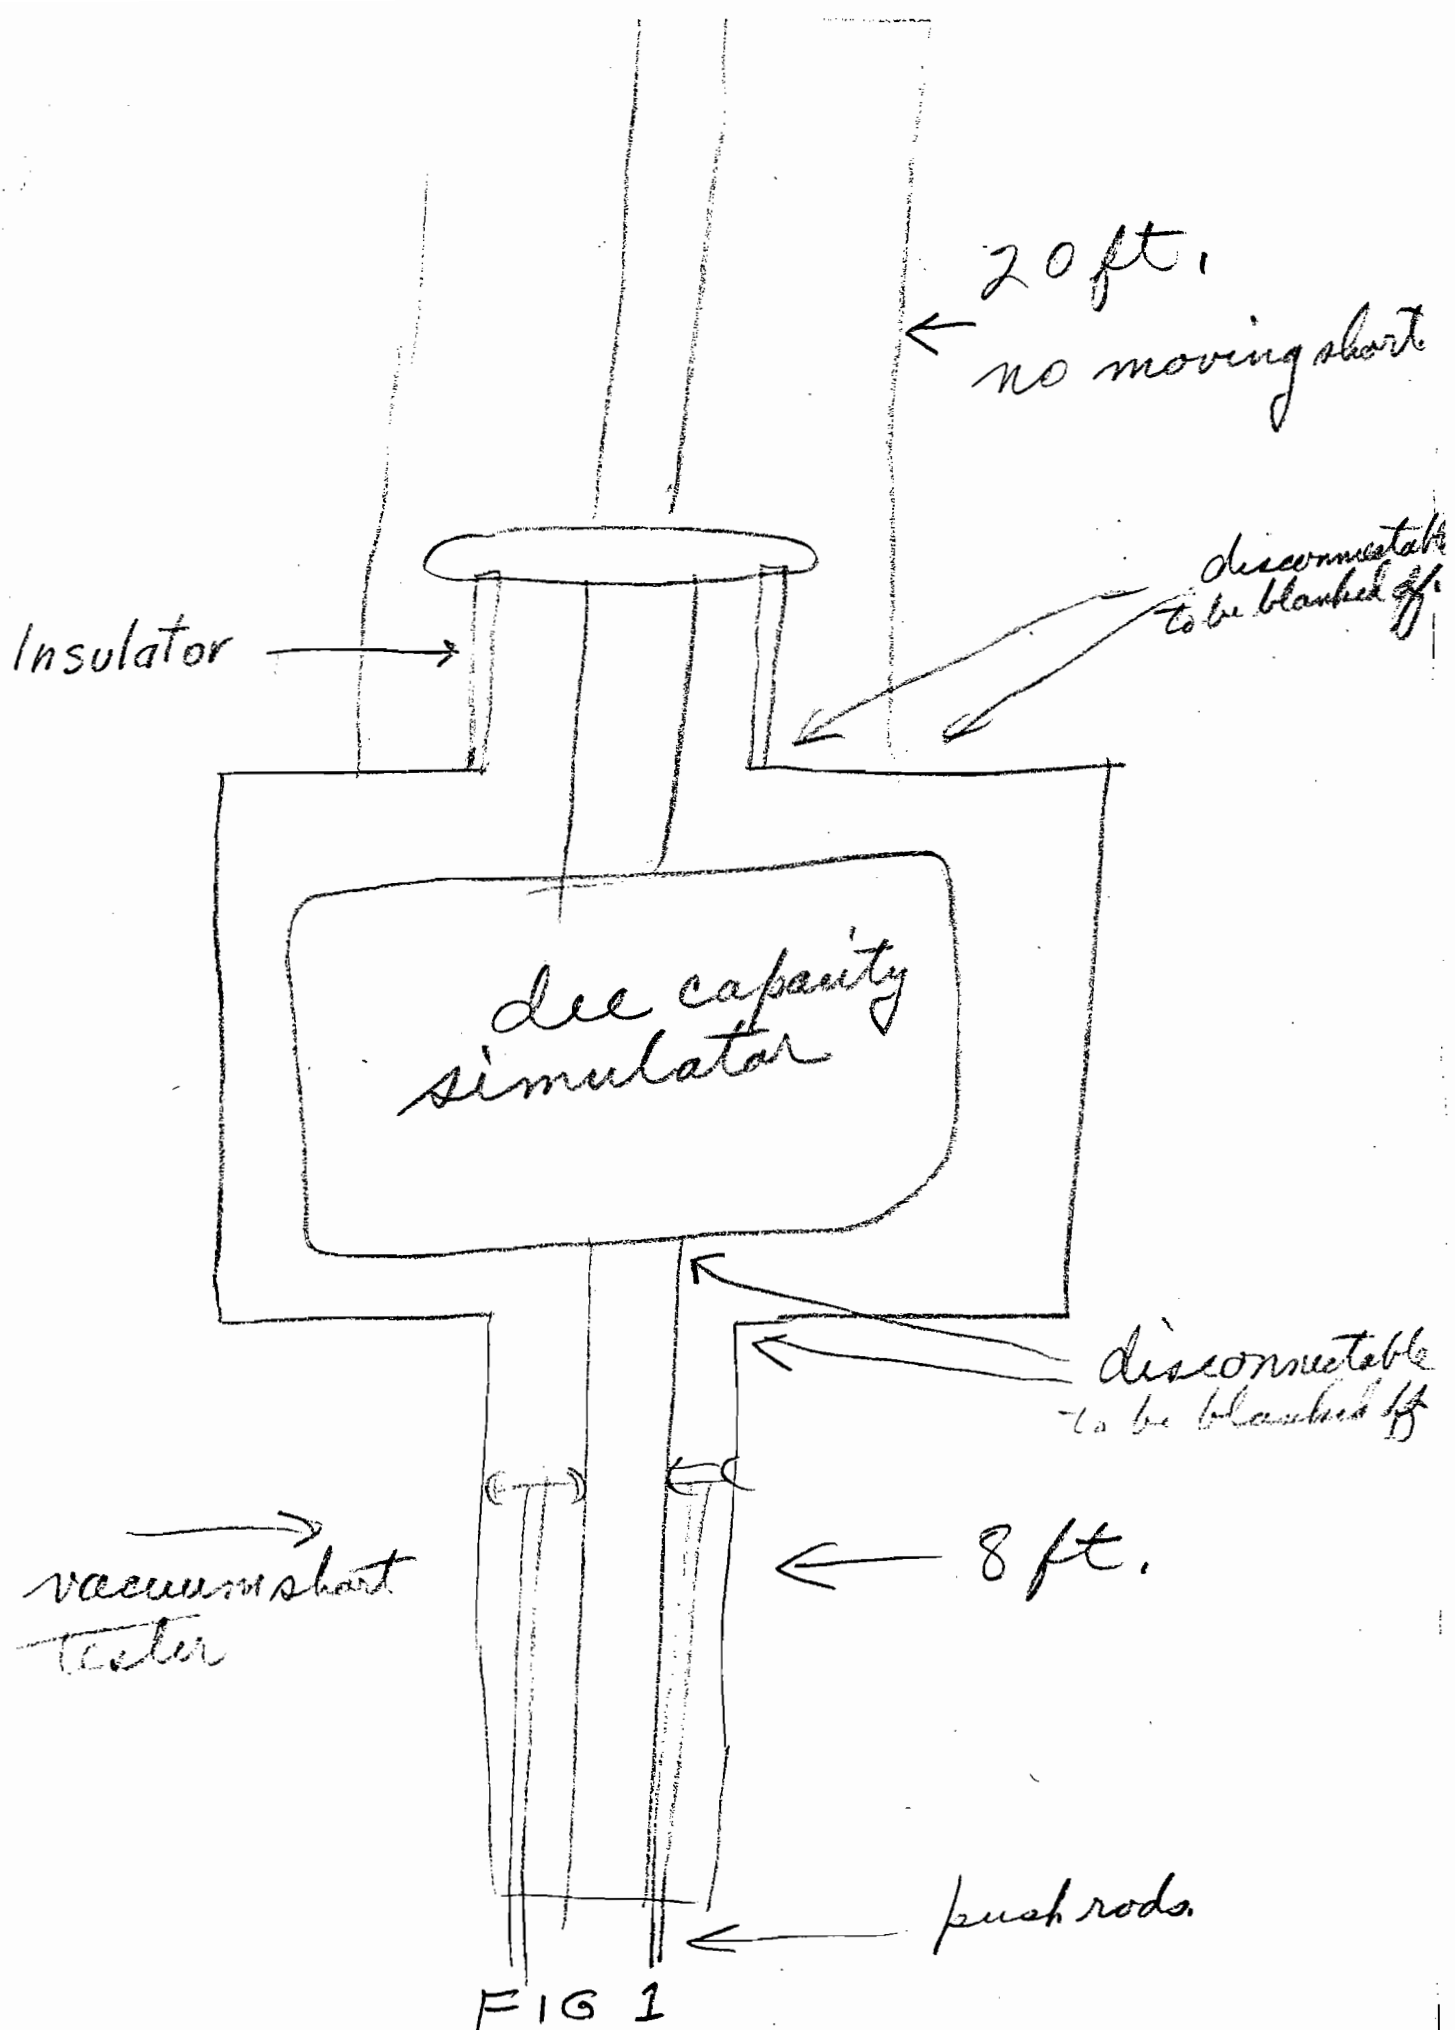 20 ft.
no moving short
disconnectabl
to be blanked off.
Insulator
dee capacity
simulator
disconnectable
to be blanked off
vacuum short
tester
8 ft.
push rods.
FIG 1